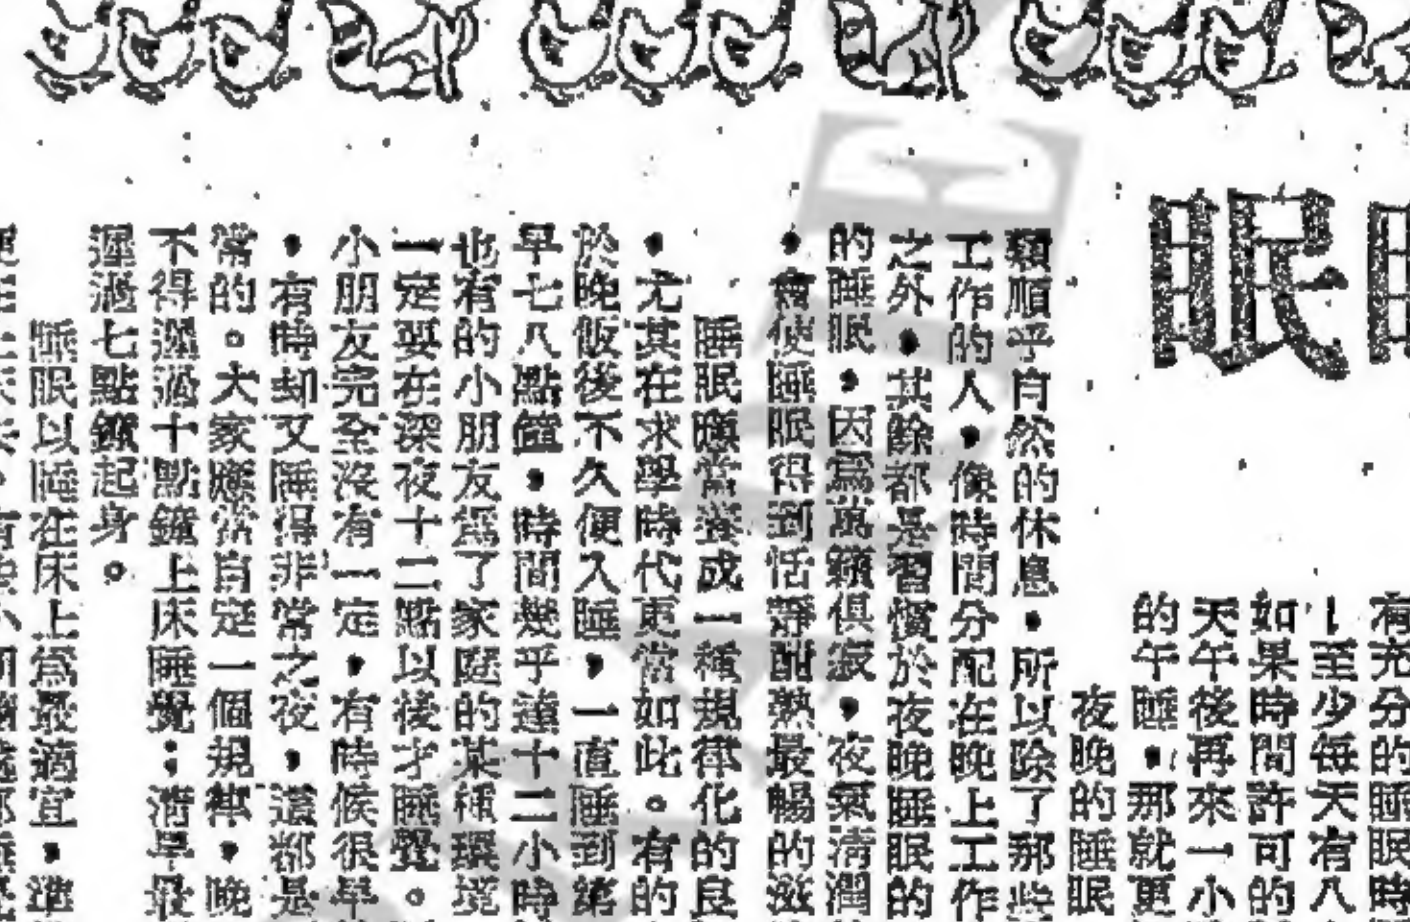 眠
有充分的睡眠時
至少每天有八
如果時間許可的
天午後再來一小
的午睡，那就更
夜晚的睡眠
類順乎自然的休息，所以除了那些
工作的人，像時間分配在晚上工作
之外，其餘都是習慣於夜晚睡眠的
的睡眠，因爲萬籟俱寂，夜氣清潤
，會使睡眠得到恬靜酣熟最暢的滋
睡眠應當養成一種規律化的良
，尤其在求學時代更當如此。有的
於晚飯後不久便入睡，一直睡到第
早七八點鐘，時間幾乎達十二小時
也有的小朋友爲了家庭的某種環境
一定要在深夜十二點以後才睡覺。
小朋友完全沒有一定，有時候很早
，有時却又睡得非常之夜，這都是
常的。大家應當自定一個規律，晚
不得遲過十點鐘上床睡覺；清早最
遲過七點鐘起身。
睡眠以睡在床上爲最適宜，準